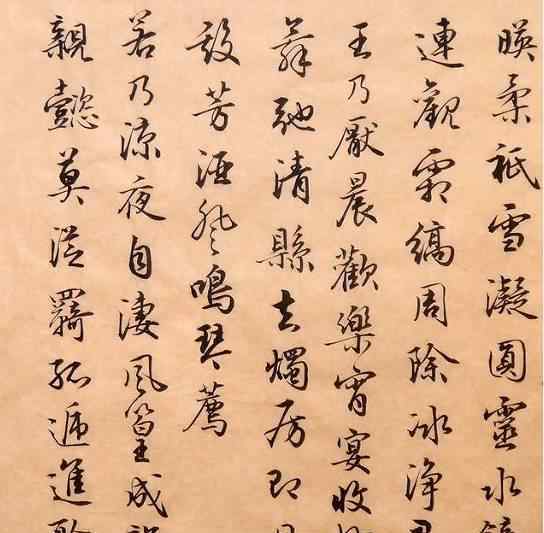 暎柔祇雪凝圓靈水
連觀霜縞周除冰净
王乃厭晨歡樂宵宴收
舞弛清縣去燭房即
殿芳酒登鳴琴薦
若乃涼夜自淒風篁成
親懿莫從羈孤遞進